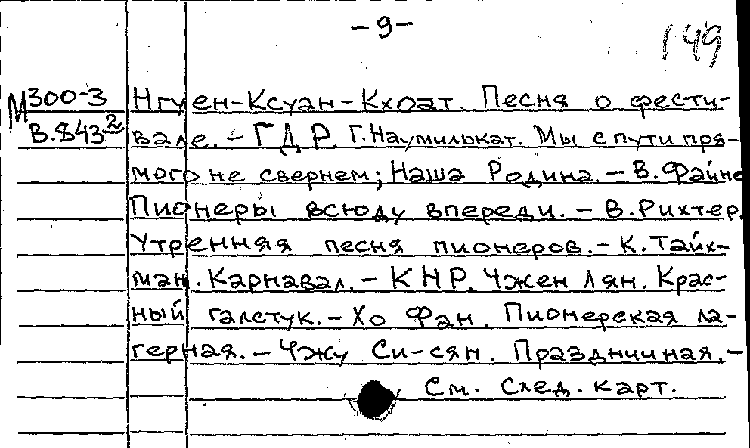 -9-
149
М300-3 Нгуен-Ксуан-Кхоат. Песня о фести-
В.843-2 вале. - ГДР. Г. Наумилькат. Мы с пути пря-
мого не свернем; Наша Родина. - В. Файне
Пионеры всюду впереди. - В. Рихтер.
Утренняя песня пионеров. - К. Тайх-
ман. Карнавал. - КНР. Чжен Лян. Крас-
ный галстук. - Хо Фан. Пионерская ла-
герная. - Чжу Си-сян. Праздничная. -
См. след. карт.